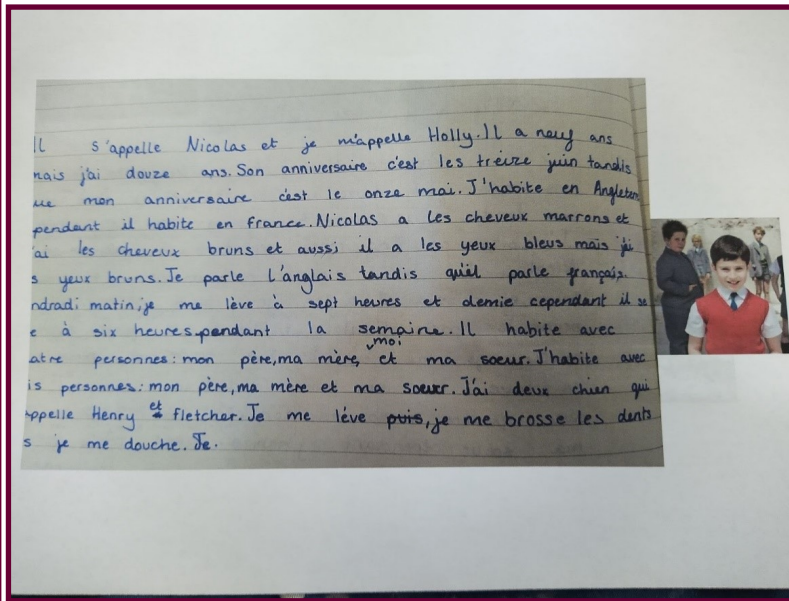 Il s'appelle Nicolas et je m'appelle Holly. Il a neuf ans
mais j'ai douze ans. Son anniversaire c'est les treize juin tandis
que mon anniversaire c'est le onze mai. J'habite en Angleterr
pendant il habite en france. Nicolas a les cheveux marrons et
j'ai les cheveux bruns et aussi il a les yeux bleus mais j'ai
s yeux bruns. Je parle l'anglais tandis qu'il parle français.
ndradi matin, je me lève à sept heures et demie cependant il se
e à six heures pendant la semaine. Il habite avec
atre personnes: mon père, ma mère, moi et ma soeur. J'habite avec
is personnes: mon père, ma mère et ma soeur. J'ai deux chien qui
appelle Henry et fletcher. Je me léve puis, je me brosse les dents
s je me douche. Je.